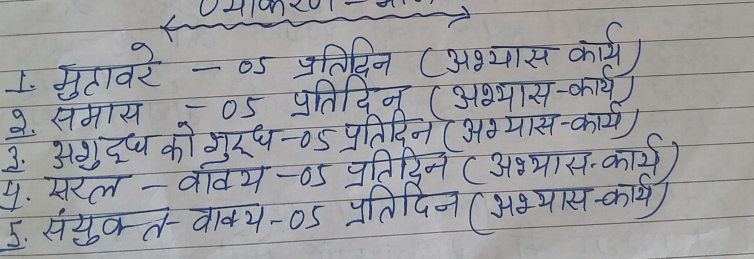 व्याकरण-
1. मुहावरे — 05 प्रतिदिन (अभ्यास कार्य)
2. समास - 05 प्रतिदिन (अभ्यास-कार्य)
3. अशुद्ध को शुद्ध-05 प्रतिदिन (अभ्यास-कार्य)
4. सरल - वाक्य -05 प्रतिदिन (अभ्यास-कार्य)
5. संयुक्त-वाक्य-05 प्रतिदिन (अभ्यास-कार्य)